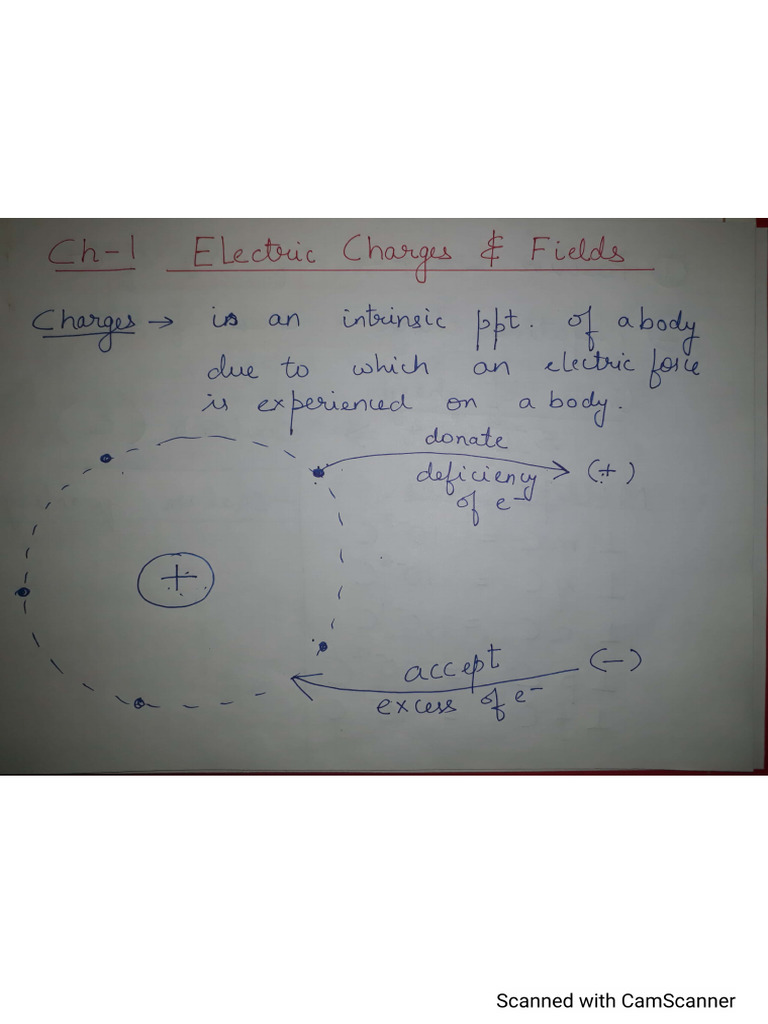 Ch-1 Electric Charges & Fields
Charges → is an intrinsic ppt. of a body
due to which an electric force
is experienced on a body.
donate
deficiency (+)
of e⁻
+
accept (-)
excess of e⁻
Scanned with CamScanner